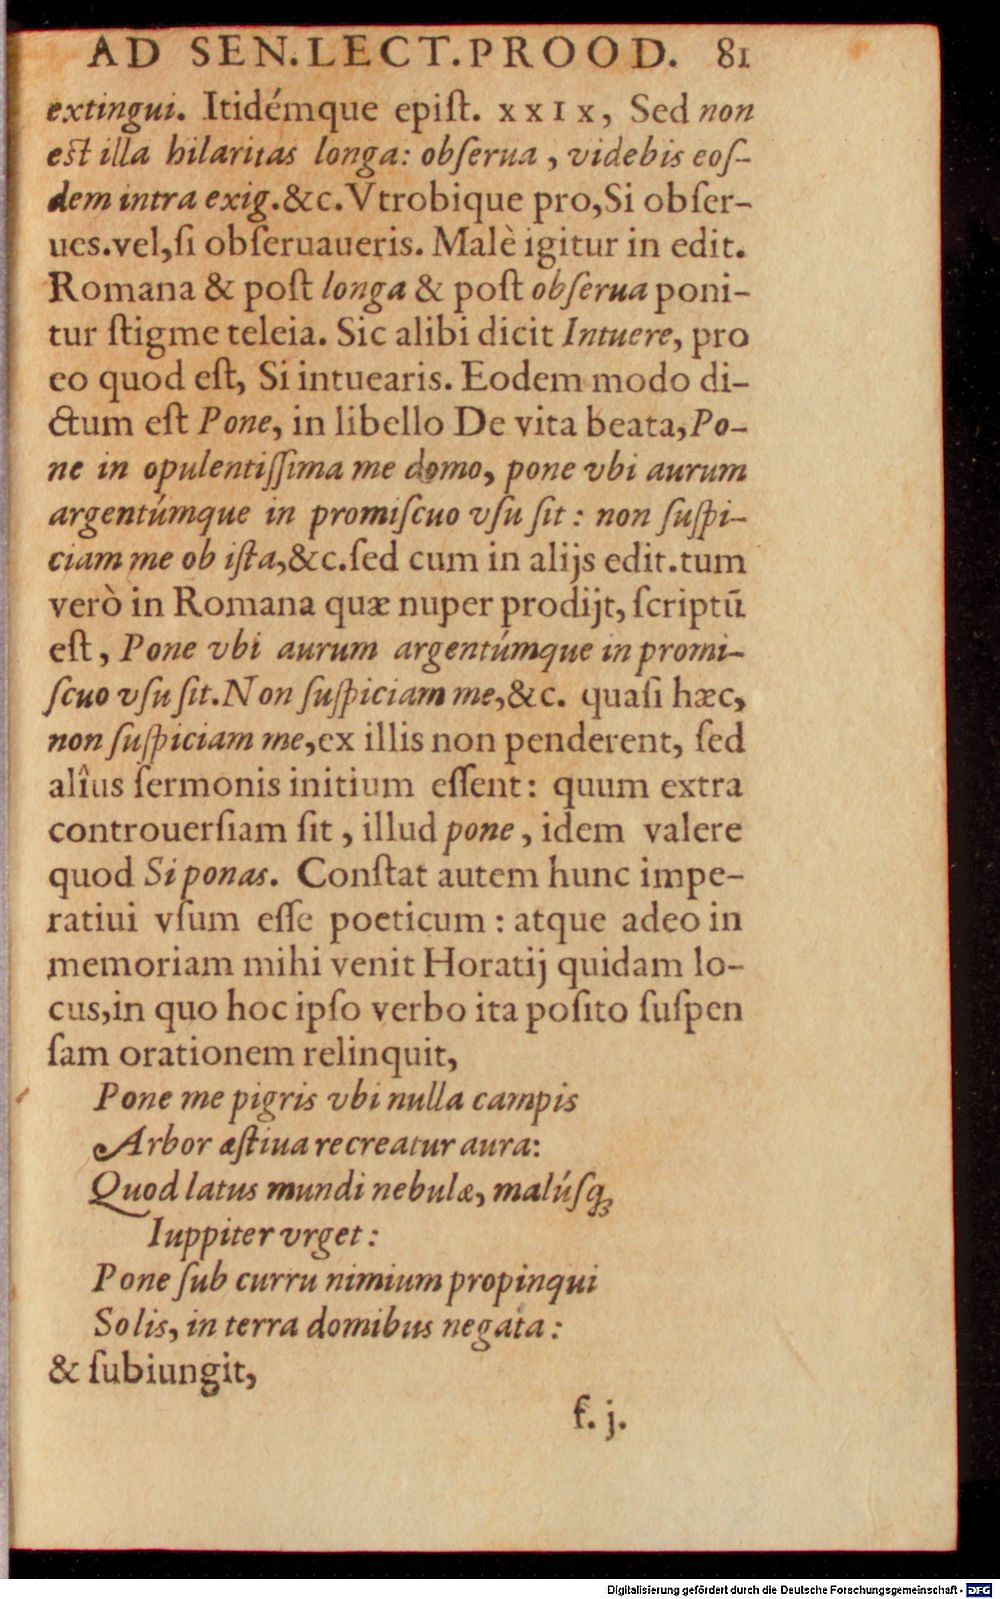 AD SEN. LECT. PROOD. 81
extingui. Itidémque epiſt. xxix, Sed non
eſt illa hilaritas longa: obſerua, videbis eoſ-
dem intra exig. &c. Vtrobique pro, Si obſer-
ues. vel, ſi obſeruaueris. Malè igitur in edit.
Romana & poſt longa & poſt obſerua poni-
tur ſtigme teleia. Sic alibi dicit Intuere, pro
eo quod eſt, Si intuearis. Eodem modo di-
ctum eſt Pone, in libello De vita beata, Po-
ne in opulentiſſima me domo, pone vbi aurum
argentúmque in promiſcuo vſu ſit: non ſuſpi-
ciam me ob iſta, &c. ſed cum in alijs edit. tum
verò in Romana quæ nuper prodijt, ſcriptū
eſt, Pone vbi aurum argentúmque in promi-
ſcuo vſu ſit. Non ſuſpiciam me, &c. quaſi hæc,
non ſuſpiciam me, ex illis non penderent, ſed
alîus ſermonis initium eſſent: quum extra
controuerſiam ſit, illud pone, idem valere
quod Si ponas. Conſtat autem hunc impe-
ratiui vſum eſſe poeticum: atque adeo in
memoriam mihi venit Horatij quidam lo-
cus, in quo hoc ipſo verbo ita poſito ſuſpen
ſam orationem relinquit,
Pone me pigris vbi nulla campis
Arbor æſtiua recreatur aura:
Quod latus mundi nebulæ, malúſq;
Iuppiter vrget:
Pone ſub curru nimium propinqui
Solis, in terra domibus negata:
& ſubiungit,
f. j.
Digitalisierung gefördert durch die Deutsche Forschungsgemeinschaft - DFG